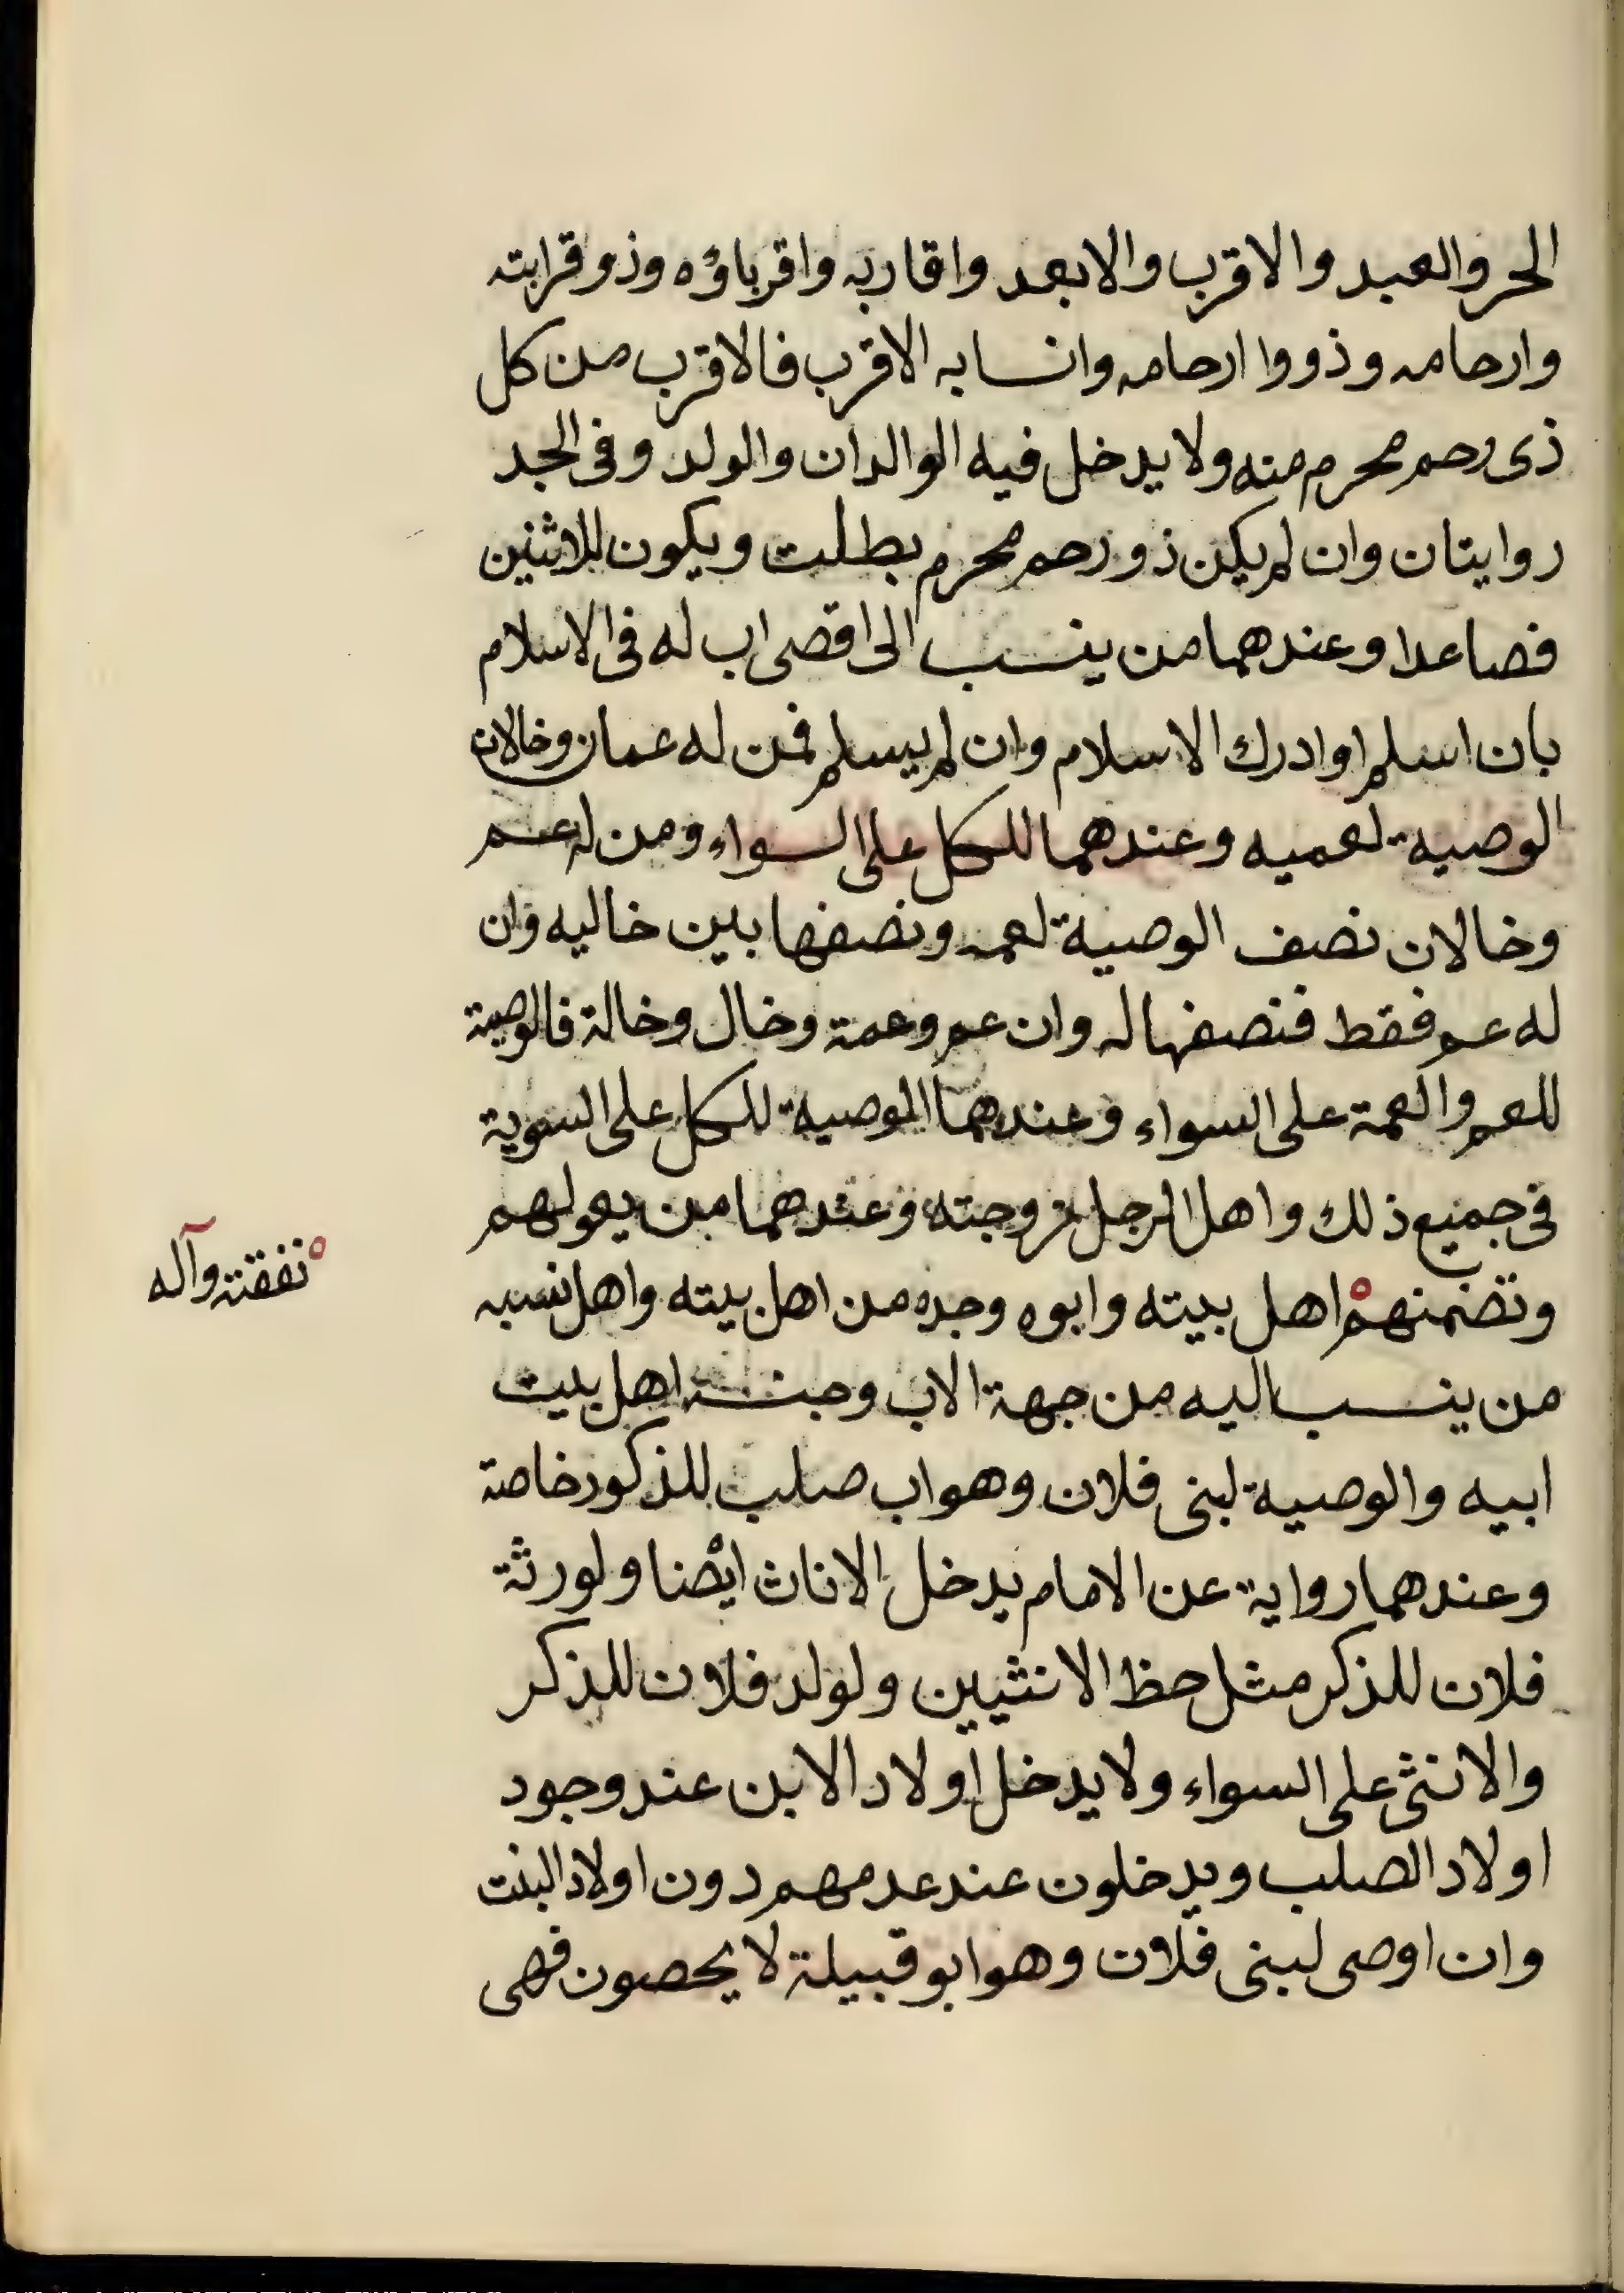 الحر والعبد والاقرب والابعد واقاربه واقرباؤه وذو قرابته
وارحامه وذووا ارحامه وانسابه الاقرب فالاقرب من كل
ذى رحم محرم منه ولا يدخل فيه الوالدان والولد وفى الجد
روايتان وان لم يكن ذو رحم محرم بطلت ويكون للاثنين
فصاعدا وعندهما من ينسب الى اقصى اب له فى الاسلام
بان اسلم او ادرك الاسلام وان لم يسلم فمن له عمان وخالان
الوصية لعميه وعندهما للكل على السواء ومن له عم
وخالان نصف الوصية لعمه ونصفها بين خاليه وان
له عم فقط فنصفها له وان عم وعمة وخال وخالة فالوصية
للعم والعمة على السواء وعندهما الوصية للكل على السوية
فى جميع ذلك واهل الرجل زوجته وعندهما من يعولهم
وتضمنهم اهل بيته وابوه وجده من اهل بيته واهل نسبه
نفقته وآله
من ينسب اليه من جهة الاب وجنسه اهل بيت
ابيه والوصية لبنى فلان وهو اب صلب للذكور خاصة
وعندهما رواية عن الامام يدخل الاناث ايضا ولورثة
فلان للذكر مثل حظ الانثيين ولولد فلان للذكر
والانثى على السواء ولا يدخل اولاد الابن عند وجود
اولاد الصلب ويدخلون عند عدمهم دون اولاد البنت
وان اوصى لبنى فلان وهو ابو قبيلة لا يحصون فهى